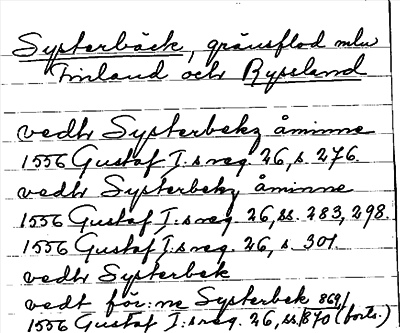 Systerbäck, gränsflod mlm
Finland och Ryssland
vedh Systerbekz åminne
1556 Gustaf I:s reg. 26, s. 276.
vedh Systerbekz åminne
1556 Gustaf I:s reg. 26, ss. 283, 298.
1556 Gustaf I:s reg. 26, s. 301.
vedh Systerbek
vedt för:ne Systerbek 869/
1556 Gustaf I:s reg. 26, ss/870 (forts.)